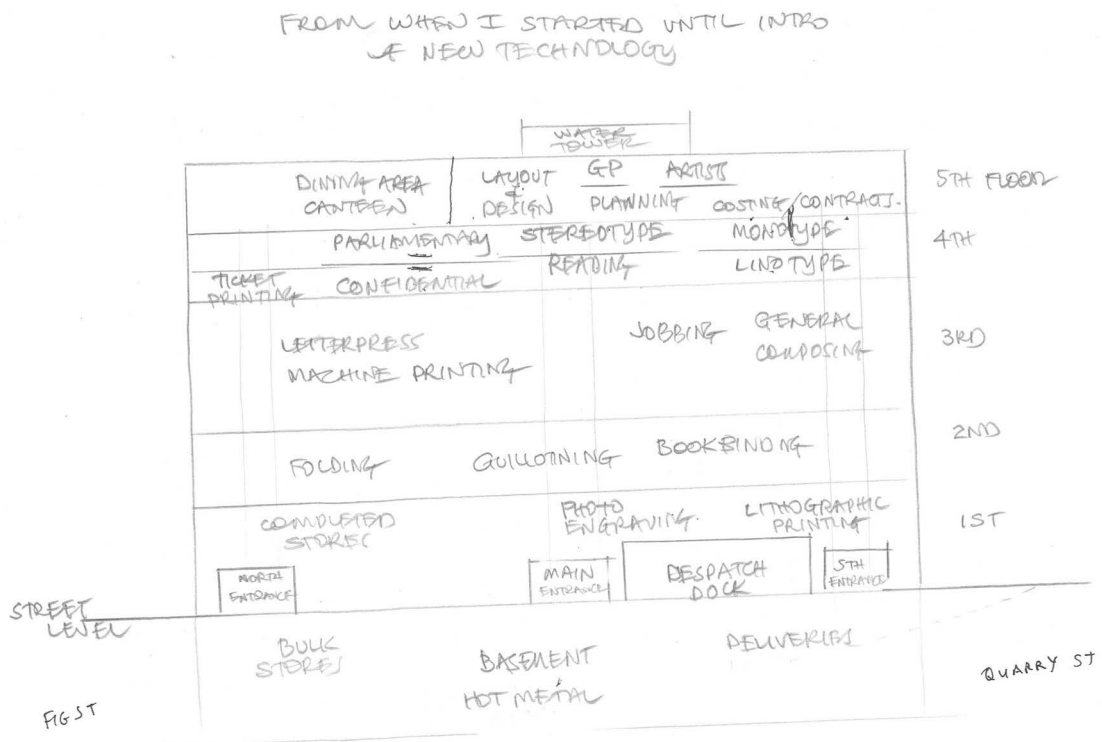 FROM WHEN I STARTED UNTIL INTRO
OF NEW TECHNOLOGY
WATER
TOWER
DINING AREA
CANTEEN
LAYOUT
&
DESIGN
GP
ARTISTS
PLANNING
COSTING/CONTRACTS.
5TH FLOOR
PARLIAMENTARY
STEREOTYPE
MONOTYPE
4TH
TICKET
PRINTING
CONFIDENTIAL
READING
LINOTYPE
LETTERPRESS
MACHINE PRINTING
JOBBING
GENERAL
COMPOSING
3RD
FOLDING
GUILLOTINING
BOOKBINDING
2ND
COMPLETED
STORES
PHOTO
ENGRAVING.
LITHOGRAPHIC
PRINTING
1ST
NORTH
ENTRANCE
MAIN
ENTRANCE
DESPATCH
DOCK
5TH
ENTRANCE
STREET
LEVEL
BULK
STORES
BASEMENT
HOT METAL
DELIVERIES
FIG ST
QUARRY ST